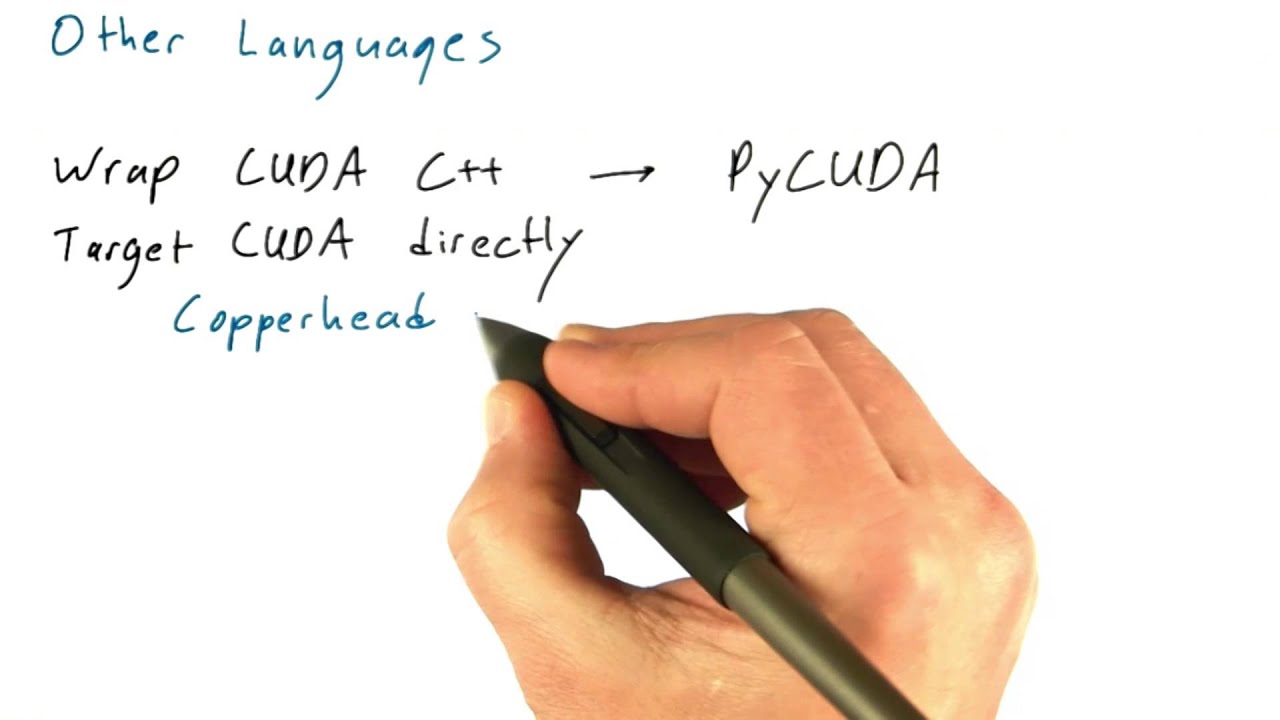 Other Languages
Wrap CUDA C++ → PyCUDA
Target CUDA directly
Copperhead